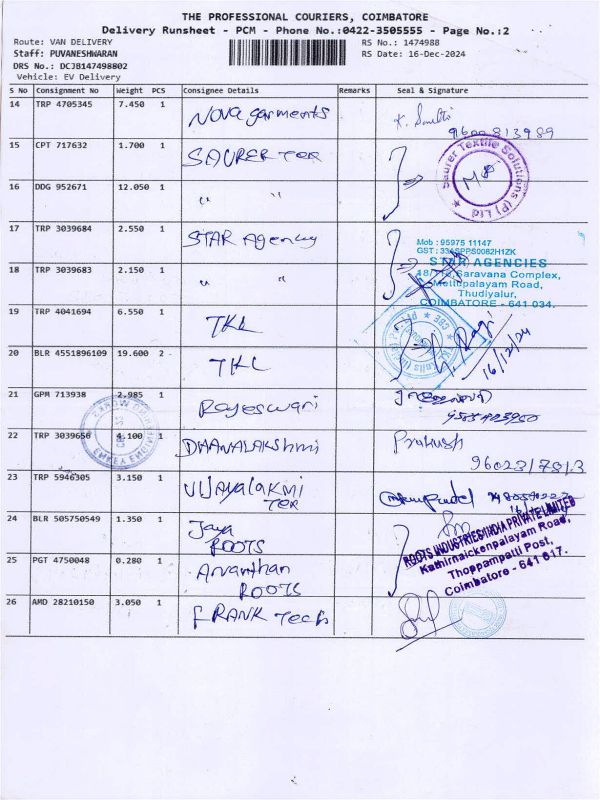 THE PROFESSIONAL COURIERS, COIMBATORE
Delivery Runsheet - PCM - Phone No.:0422-3505555 - Page No.:2
Route: VAN DELIVERY RS No.: 1474988
Staff: PUVANESHWARAN RS Date: 16-Dec-2024
DRS No.: DCJB147498802
Vehicle: EV Delivery
S No Consignment No Weight PCS Consignee Details Remarks Seal & Signature
14 TRP 4705345 7.450 1 Nova garments
9600813989
15 CPT 717632 1.700 1 SAURER TEX
Saurer Textile Solutions (P) Ltd
16 DDG 952671 12.050 1 " "
17 TRP 3039684 2.550 1 STAR Agency
Mob : 95975 11147
GST : 33ASPPS0082H1ZK
STAR AGENCIES
18/710, Saravana Complex,
Mettupalayam Road,
Thudiyalur,
COIMBATORE - 641 034.
18 TRP 3039683 2.150 1 " "
19 TRP 4041694 6.550 1 TKL
Ragi
16/12/24
20 BLR 4551896109 19.600 2 TKL
21 GPM 713938 2.985 1 Rajeswari
22 TRP 3039656 4.100 1 DHANALAKShmi Prakash
23 TRP 5946305 3.150 1 VIJAYALAKMI
TEX
24 BLR 505750549 1.350 1 Jaya
ROOTS
ROOTS INDUSTRIES INDIA PRIVATE LIMITED
Kathirnaickenpalayam Road,
Thoppampatti Post,
Coimbatore - 641 617.
25 PGT 4750048 0.280 1 Arvanthan
ROOTS
26 AMD 28210150 3.050 1 FRANK Tech